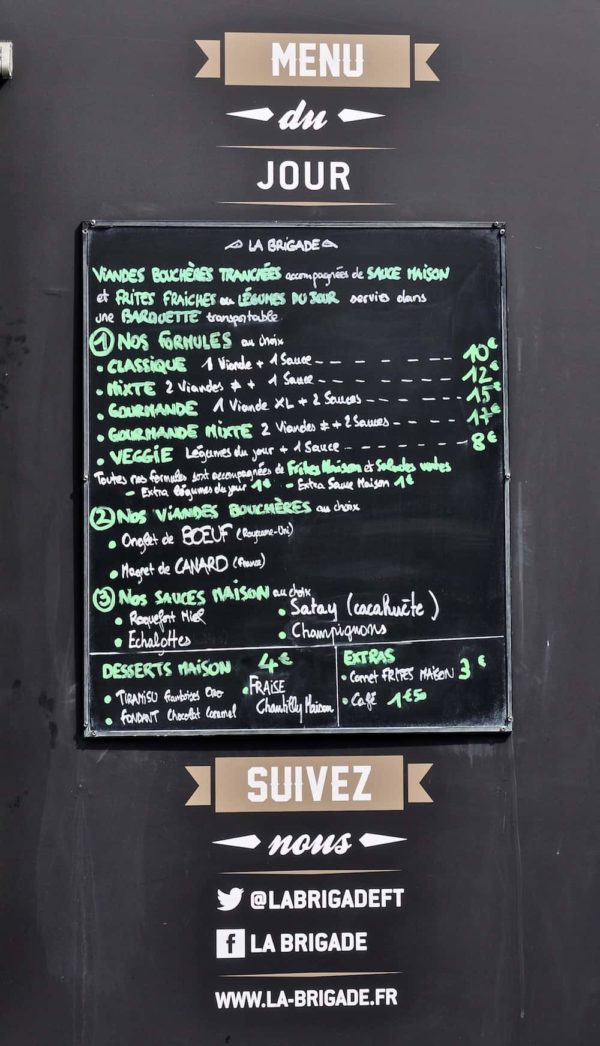 MENU
du
JOUR
LA BRIGADE
VIANDES BOUCHÈRES TRANCHÉES accompagnées de SAUCE MAISON
et FRITES FRAICHES ou LÉGUMES DU JOUR servies dans
une BARQUETTE transportable
① NOS FORMULES au choix
• CLASSIQUE 1 Viande + 1 Sauce 10€
• MIXTE 2 Viandes ≠ + 1 Sauce 12€
• GOURMANDE 1 Viande XL + 2 Sauces 15€
• GOURMANDE MIXTE 2 Viandes ≠ + 2 Sauces 17€
• VEGGIE Légumes du jour + 1 Sauce 8€
Toutes nos formules sont accompagnées de Frites Maison et Salades vertes
- Extra légumes du jour 1€ - Extra Sauce Maison 1€
② NOS VIANDES BOUCHÈRES au choix
• Onglet de BOEUF (Royaume-Uni)
• Magret de CANARD (France)
③ NOS SAUCES MAISON au choix
• Roquefort Miel
• Satay (cacahuète)
• Echalottes
• Champignons
DESSERTS MAISON 4€
• TIRAMISU Framboises Oreo
• FONDANT Chocolat Caramel
• FRAISE
Chantilly Maison
EXTRAS
• Cornet FRITES MAISON 3€
• Café 1€50
SUIVEZ
nous
@LABRIGADEFT
f LA BRIGADE
WWW.LA-BRIGADE.FR